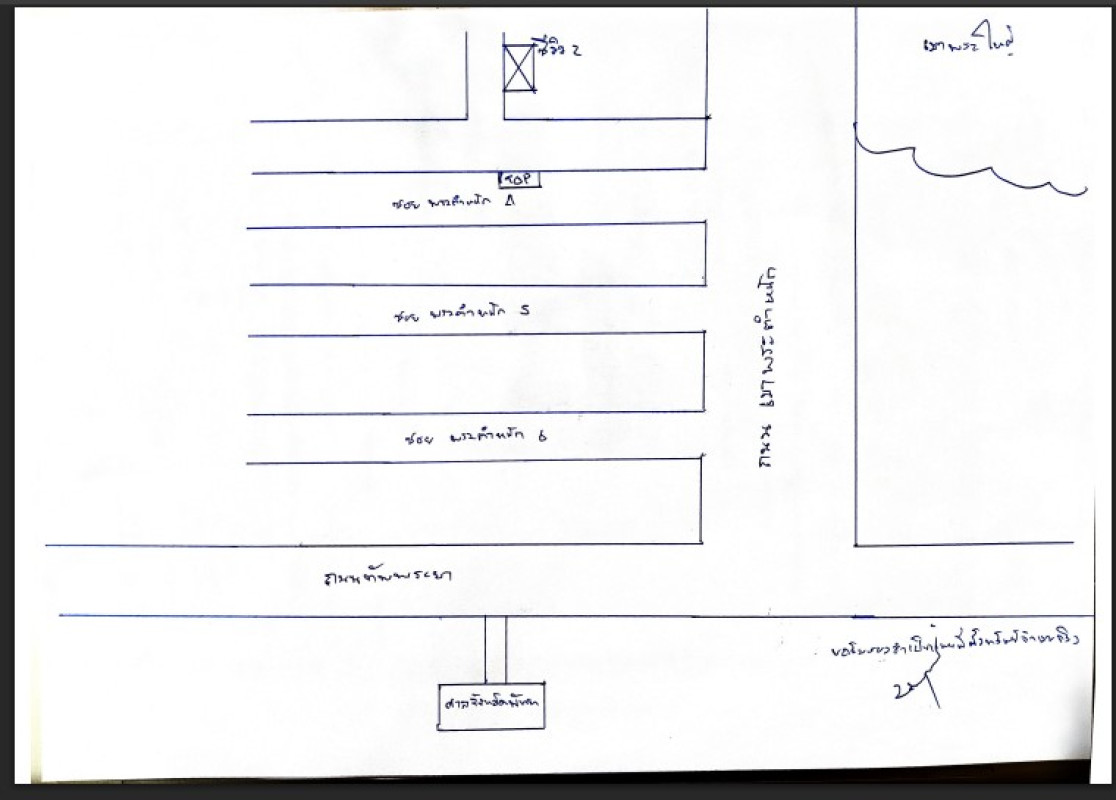 ซีวิว 2
เขาพระใหญ่
TOP
ซอย พระตำหนัก 4
ซอย พระตำหนัก 5
ถนน เขาพระตำหนัก
ซอย พระตำหนัก 6
ถนนทัพพระยา
ขอรับรองว่าเป็นแผนที่ตั้งทรัพย์จริง
ศาลจังหวัดพัทยา